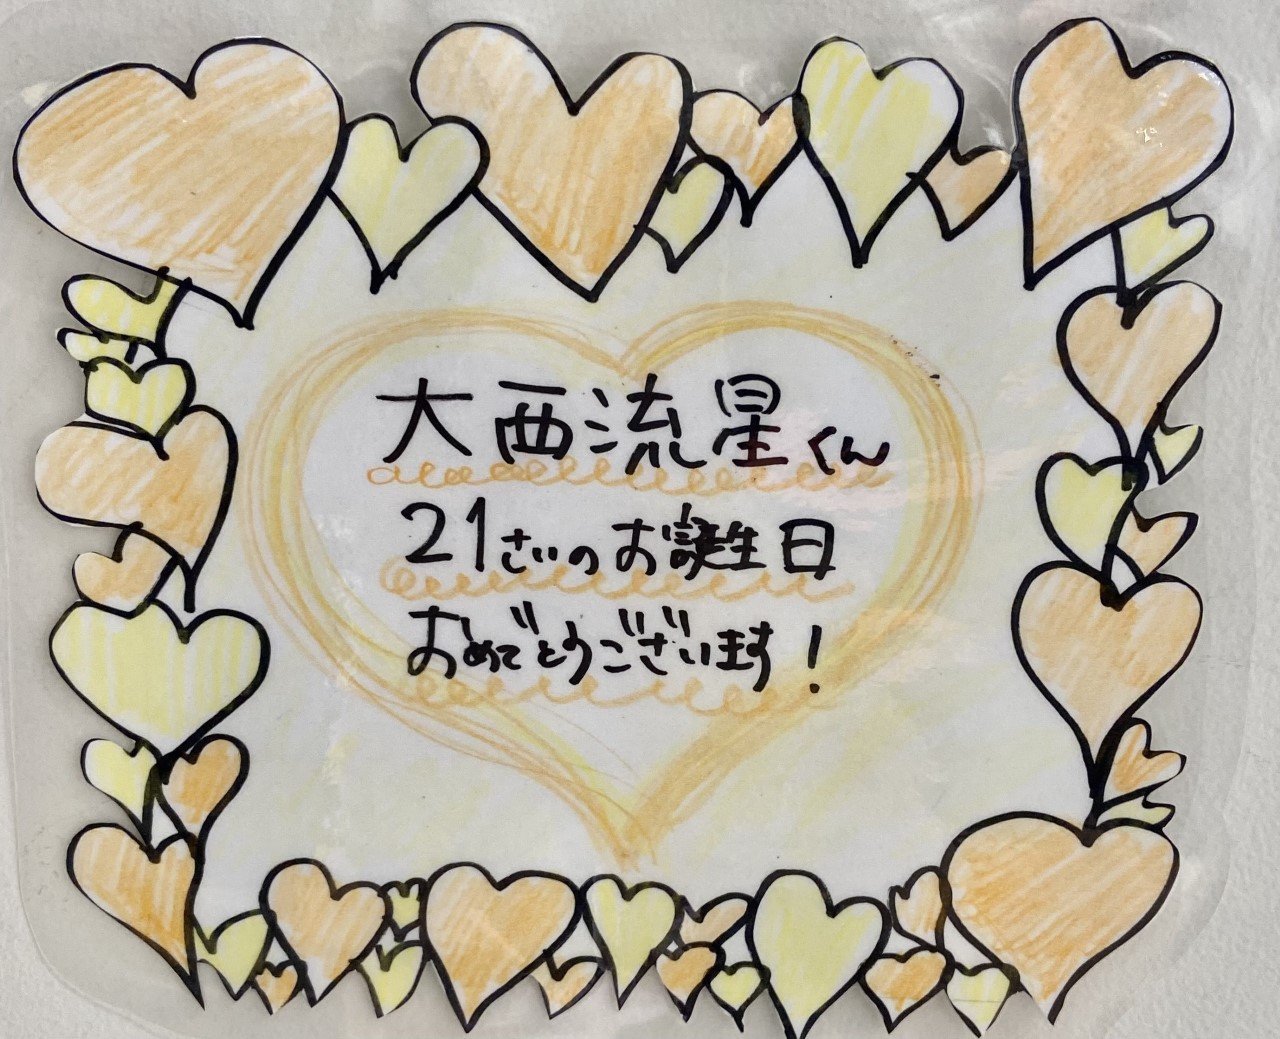 大西流星くん
21さいのお誕生日
おめでとうございます！